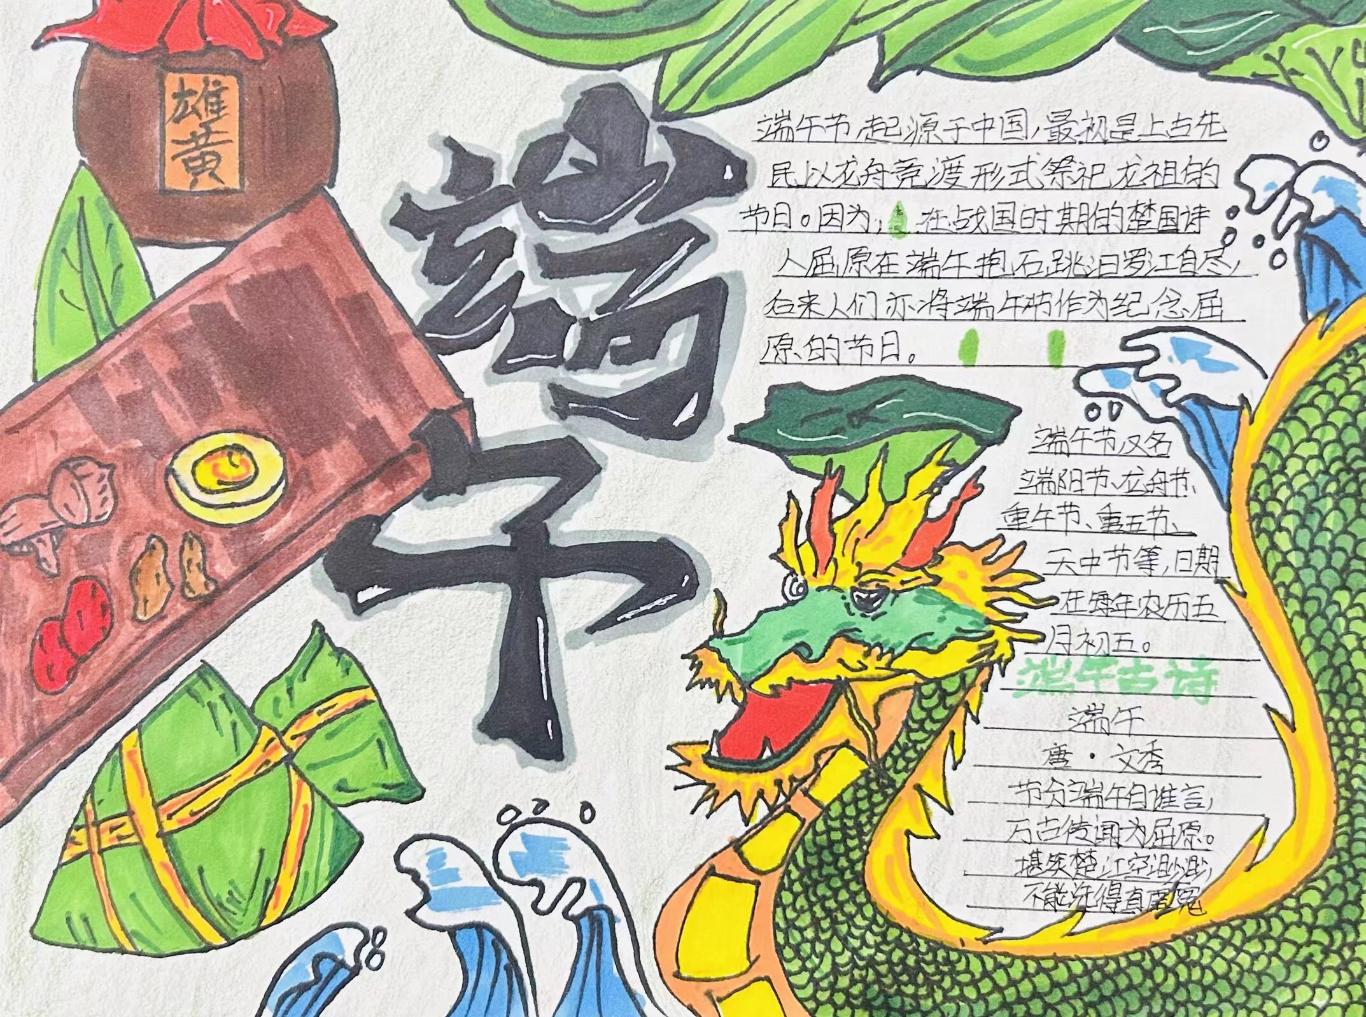 雄黄
端午
端午节起源于中国,最初是上古先
民以龙舟竞渡形式祭祀龙祖的
节日。因为,在战国时期的楚国诗
人屈原在端午抱石跳汨罗江自尽,
后来人们亦将端午节作为纪念屈
原的节日。
端午节又名
端阳节、龙舟节、
重午节、重五节、
天中节等,日期
在每年农历五
月初五。
端午古诗
端午
唐·文秀
节分端午自谁言,
万古传闻为屈原。
堪笑楚江空渺渺,
不能洗得直冤